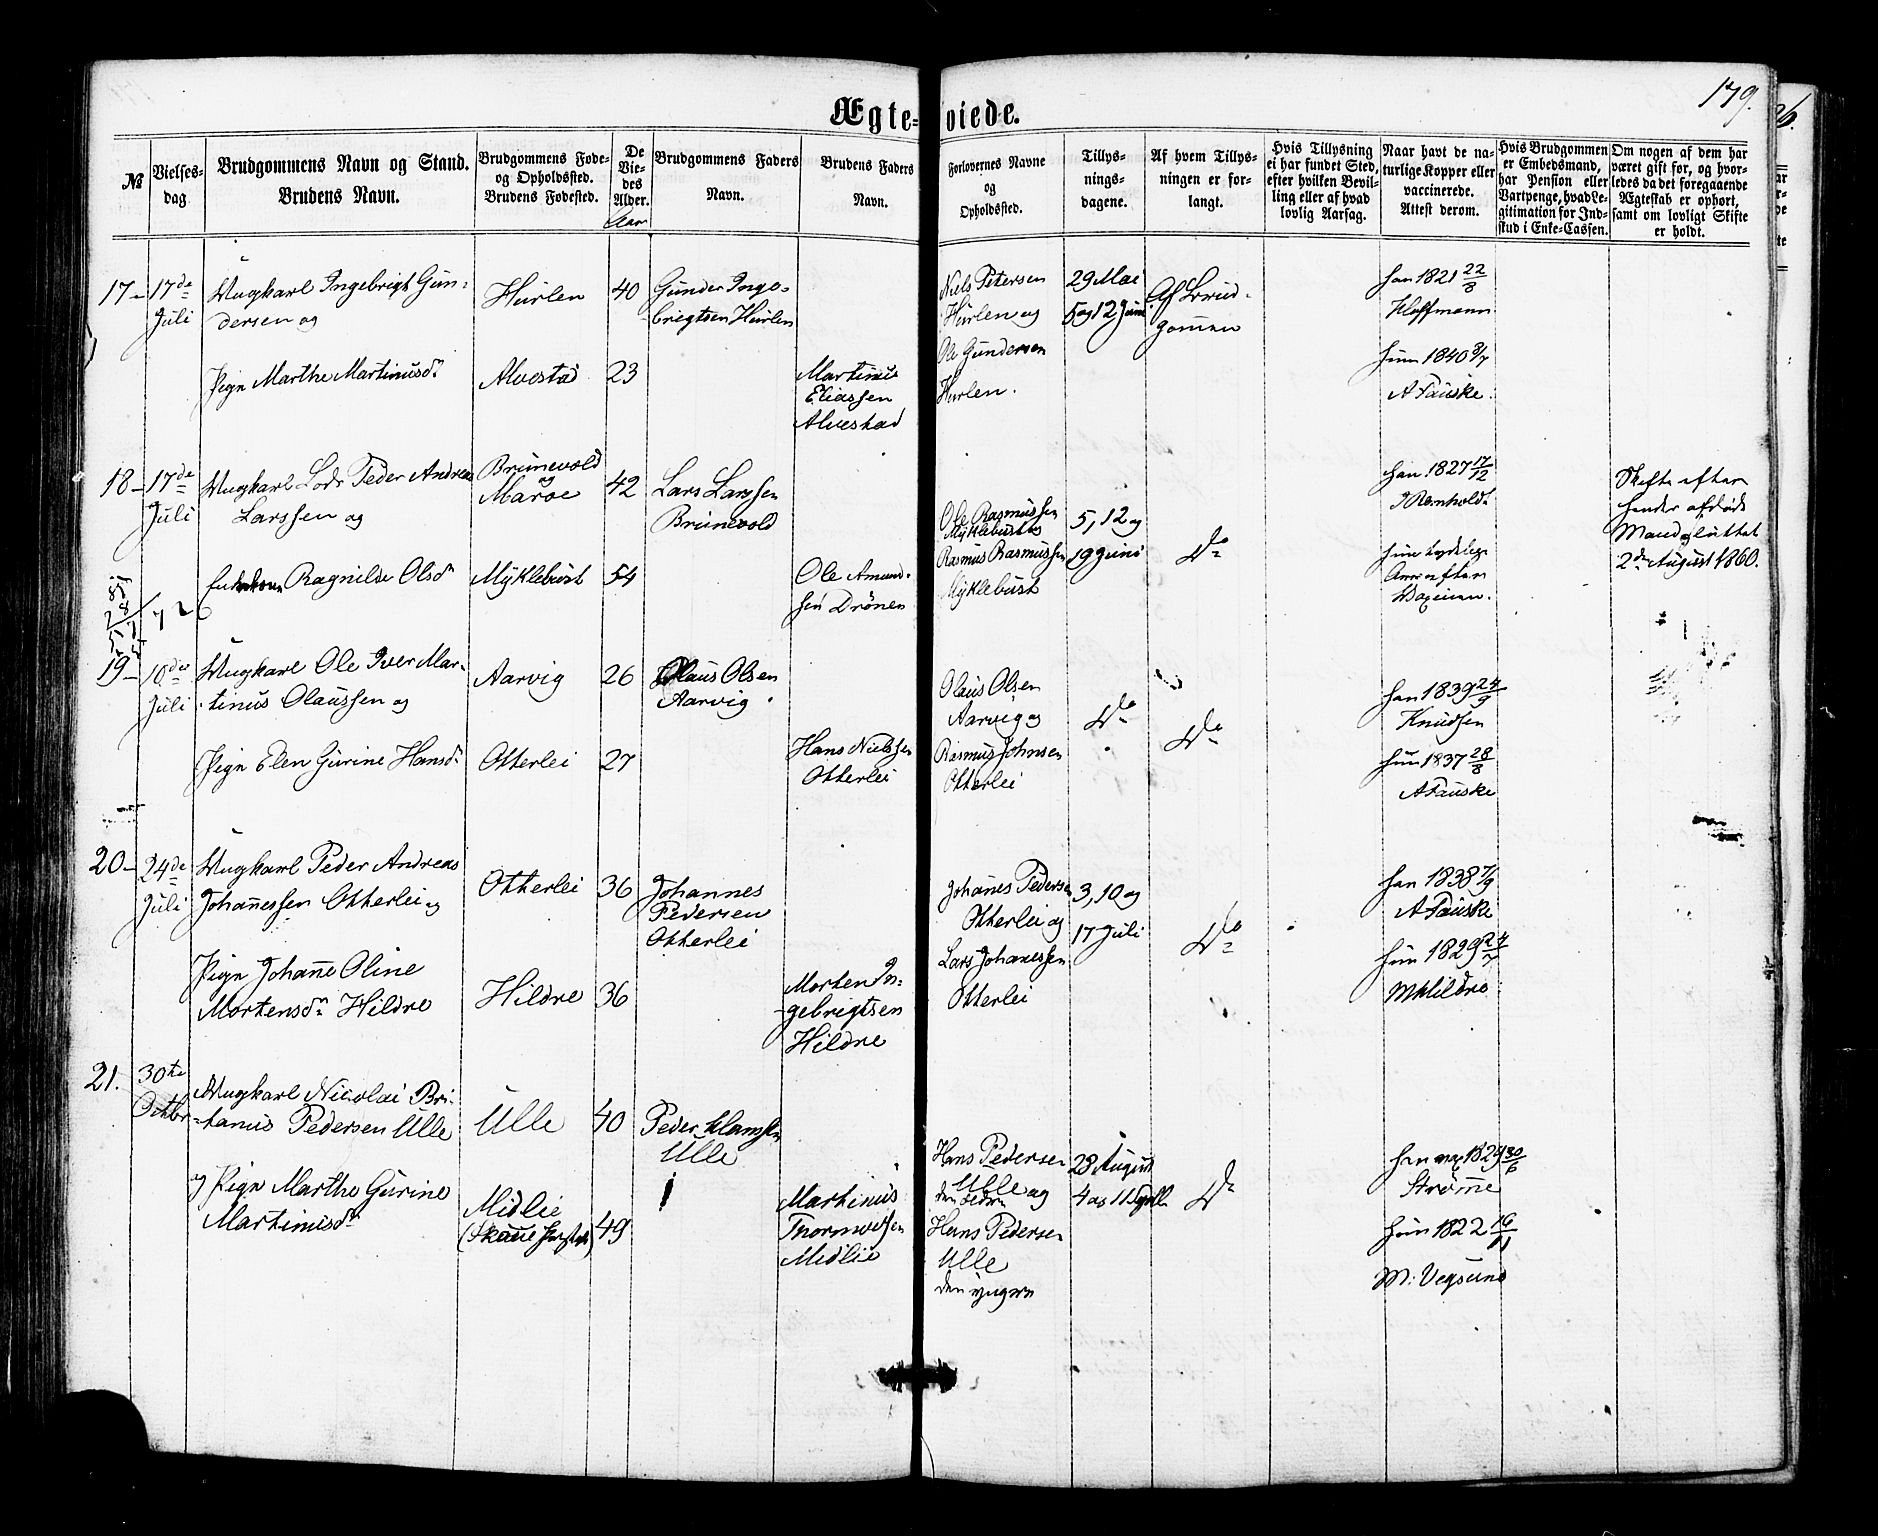 179.
Ægte-viede.
№
Vielses-
dag
Brudgommens Navn og Stand.
Brudens Navn.
Brudgommens Føde-
og Opholdssted.
Brudens Fødested.
De
Vie-
des
Alder.
Aar
Brudgommens Faders
Navn.
Brudens Faders
Navn.
Forlovernes Navne
og
Opholdssted.
Tillys-
nings-
dagene.
Af hvem Tillys-
ningen er for-
langt.
Hvis Tillysning
ei har fundet Sted,
efter hvilken Bevil-
ling eller af hvad
lovlig Aarsag.
Naar havt de na-
turlige Kopper eller
vaccinerede.
Attest derom.
Hvis Brudgommen
er Embedsmand,
har Pension eller
Vartpenge, hvad Le-
gitimation for Ind-
skud i Enke-Cassen.
Om nogen af dem har
været gift før, og hvor-
ledes da det foregaaende
Ægteskab er ophørt,
samt om lovligt Skifte
er holdt.
17-
17de
Juli
Ungkarl Ingebrigt Gun-
dersen og
Hurlen
40
Gunder Inge-
brigtsen Hurlen
Niels Petersen
Hurlen og
Ole Gundersen
Hurlen.
29 Mai
5 og 12 Juni
Af Brud-
gommen
han 1821 22/8
Hoffmann
Pign Marthe Martinusdr
Alvestad
23
Martinus
Eliassen
Alvestad
hun 1840 8/7
A Fauske.
18-
17de
Juli
Ungkarl Lods Peder Andreas
Larssen og
Brunevold
og
Marøe
42
Lars Larssen
Brunevold
Ole Rasmussen
Myklebust og
Rasmus Rasmussen
Myklebust
5, 12 og
19 Juni
Do
han 1827 17/12
J Romholdt
Skifte efter
hendes afdøde
Mand sluttet
2den August 1860.
Enkekone Ragnilde Olsdr
Myklebust
54
Ole Amund-
sen Drönen
hun tydelige
Arr efter
Vaccinen.
19-
10de
Juli
Ungkarl Ole Iver Mar-
tinus Olaussen og
Aarvig
26
Olaus Olsen
Aarvig
Olaus Olsen
Aarvig og
Rasmus Johnsen
Otterlei
Do
Do
han 1839 24/9
Knudsen
Pign Elen Gurine Hansdr
Otterlei
27
Hans Nielssen
Otterlei
hun 1837 28/8
A Fauske
20-
24de
Juli
Ungkarl Peder Andreas
Johannessen Otterlei og
Otterlei
36
Johannes
Pedersen
Otterlei
Johannes Pedersen
Otterlei og
Lars Johanessen
Otterlei
3, 10 og
17 Juli
Do
han 1838 7/9
A Fauske
Pign Johanne Oline
Mortensdr Hildre
Hildre
36
Morten In-
gebrigtsen
Hildre
hun 1829 24/7
M Hildre
21.
30te
Octbr
Ungkarl Nicolai Bri-
tanus Pedersen Ulle
Ulle
40
Peder Hanssen
Ulle
Hans Pedersen
Ulle og
den ældre
Hans Pedersen
Ulle
den yngre
28 August
4 og 11 Septb.
Do
han 1829 30/6
Strømme
og Pign Marthe Gurine
Martinusdr
Midlie
49
Martinus
Thormodsen
Midlie
hun 1822 16/11
M. Vegsund